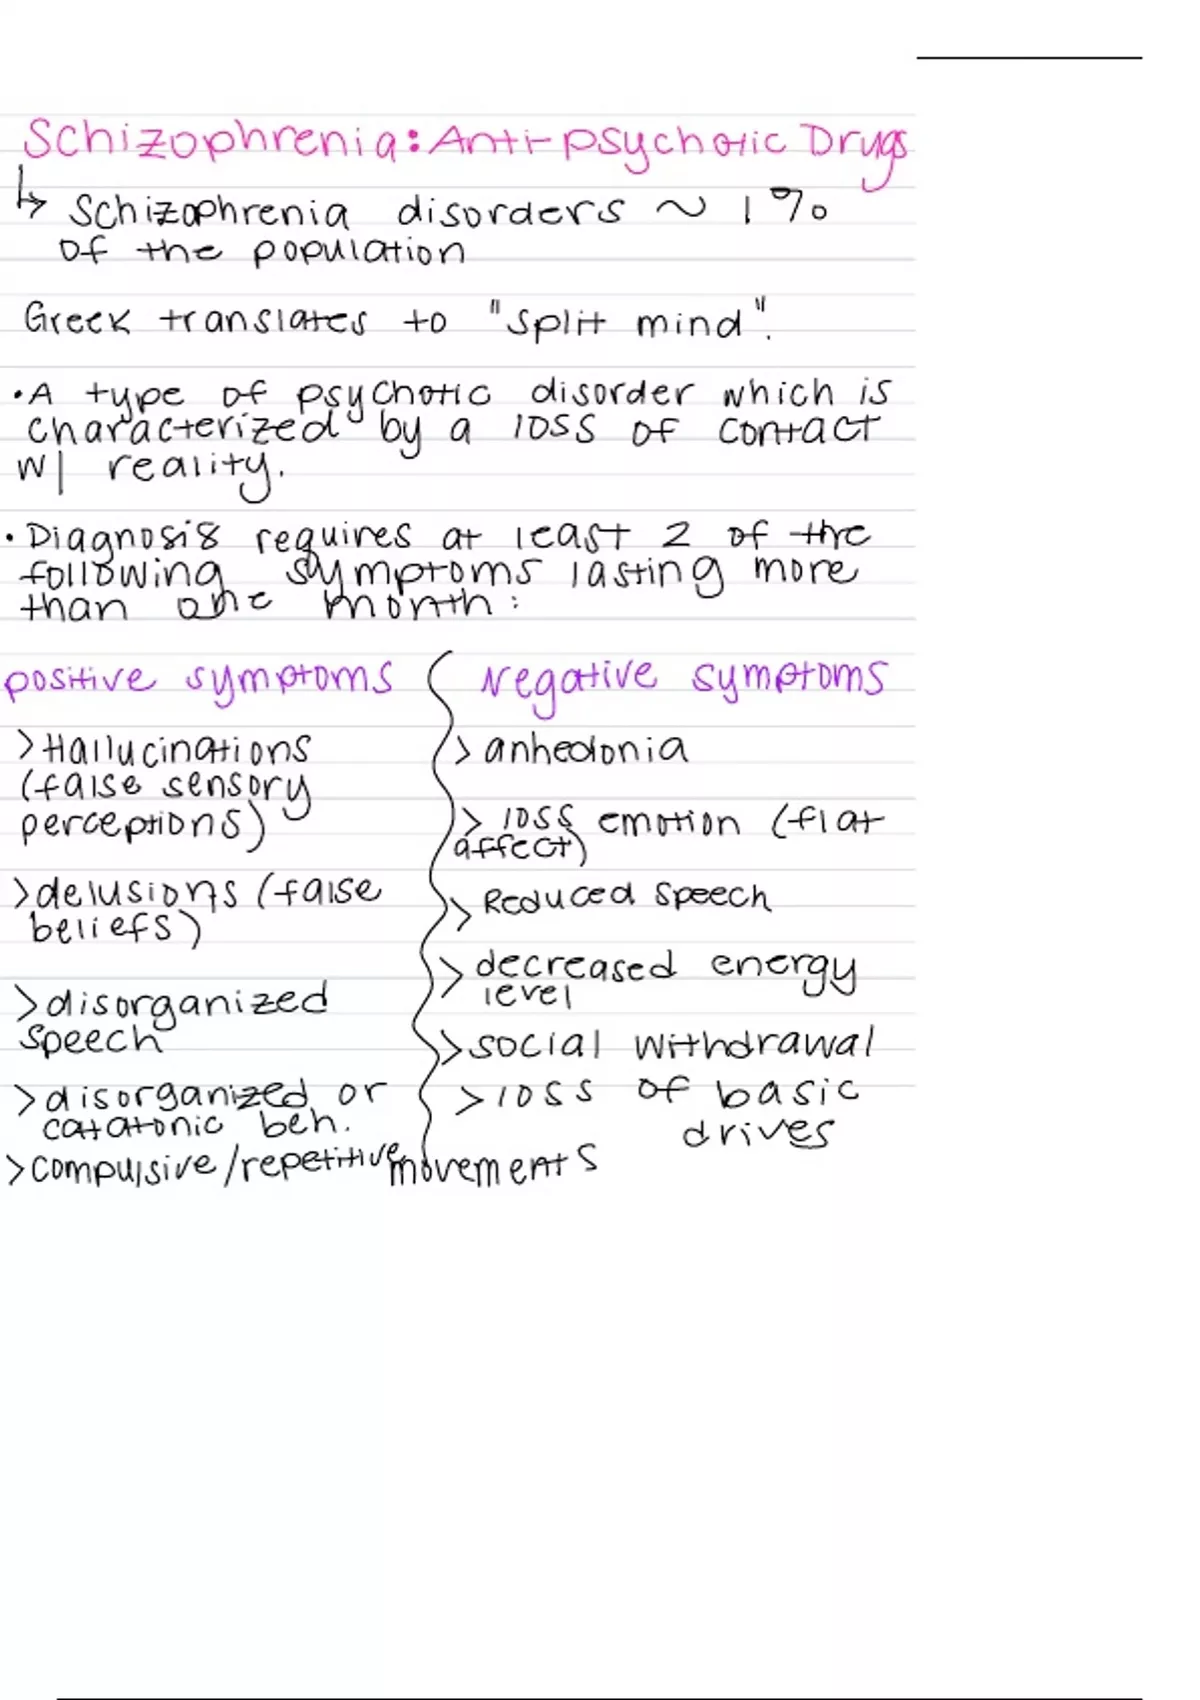 Schizophrenia: Anti-psychotic Drugs
↳ Schizophrenia disorders ~ 1%
of the population
Greek translates to "split mind".
• A type of psychotic disorder which is
characterized by a loss of contact
w/ reality.
• Diagnosis requires at least 2 of the
following symptoms lasting more
than one month:
positive symptoms
> Hallucinations
(false sensory
perceptions)
> delusions (false
beliefs)
> disorganized
speech
> disorganized or
catatonic beh.
> compulsive/repetitive movements
Negative symptoms
> anhedonia
> loss emotion (flat
affect)
> Reduced speech
> decreased energy
level
> social withdrawal
> loss of basic
drives